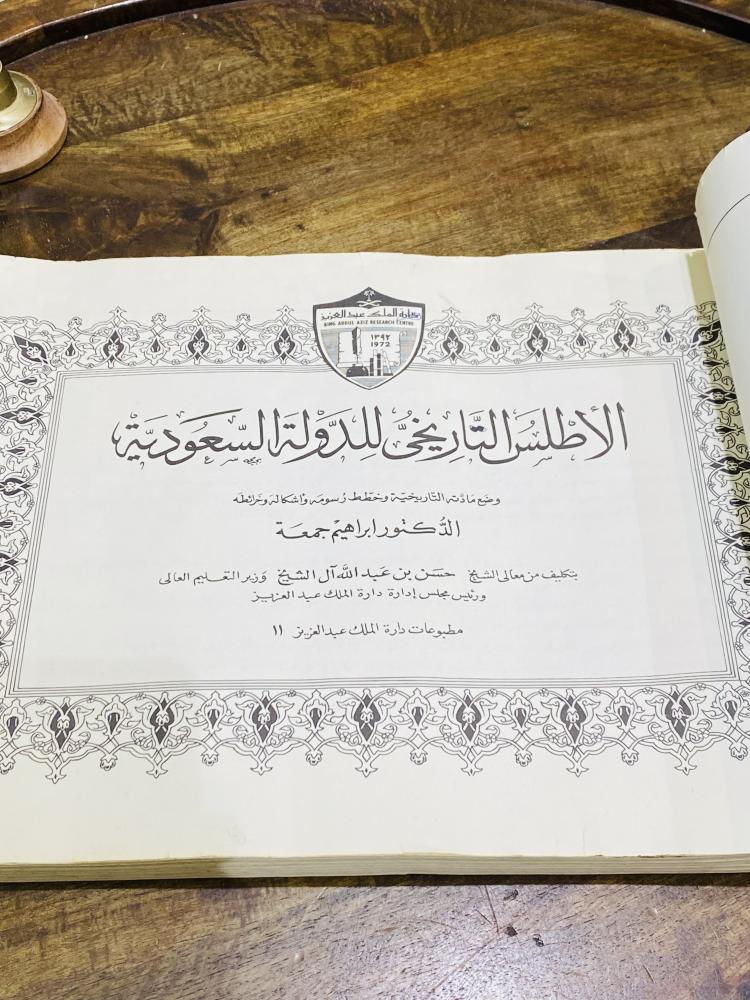 دارة الملك عبد العزيز
KING ABDUL AZIZ RESEARCH CENTRE
١٣٩٢
1972
الأطلس التَّاريخيُّ للدَّولة السّعُوديَّة
وضع مادته التاريخية وخطط رسومه وأشكاله وخرائطه
الدُّكتور ابراهيم جمعة
بتكليف من معالى الشيخ حسَن بن عَبد الله آل الشيخ وَزير التعـليم العالى
ورئيس مجلس إدارة دارة الملك عبد العزيز
مطبوعات دارة الملك عبدالعزيز ١١